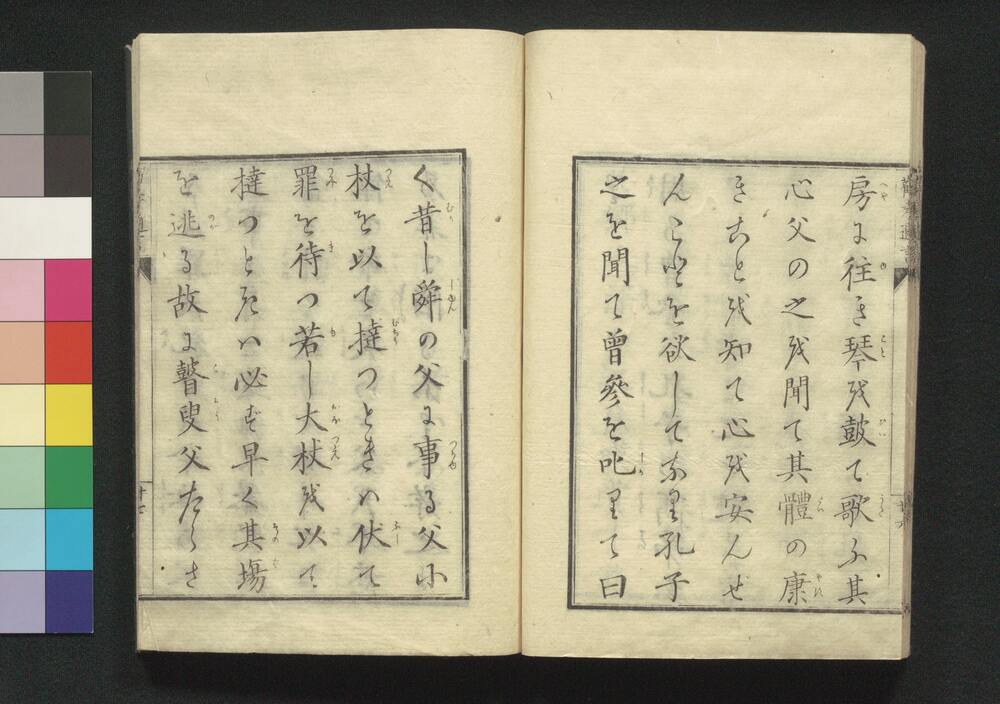 房に往き琴を鼓て歌ふ其
心父の之を聞て其體の康
きことを知て心を安んぜ
んことを欲してなり孔子
之を聞て曾參を叱りて曰
く昔し舜の父に事る父小
杖を以て撻つときは伏て
罪を待つ若し大杖を以て
撻つときは必ず早く其場
を逃る故に瞽叟父たらさ